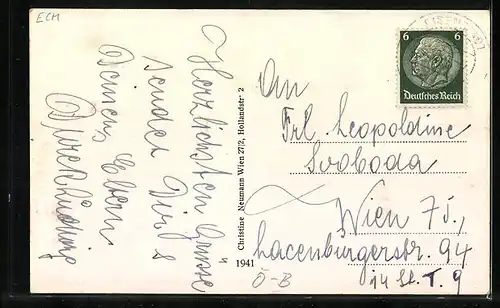 ECM
Herzlichsten Grüsse
sendet Dir &
Deinen Eltern
Christine Neumann Wien 27/2, Hollandstr 2
1941
Ö-B
6 6
Deutsches Reich
An
Frl. Leopoldine
Svoboda
Wien 75.,
Laxenburgerstr. 94
14 St. T. 9